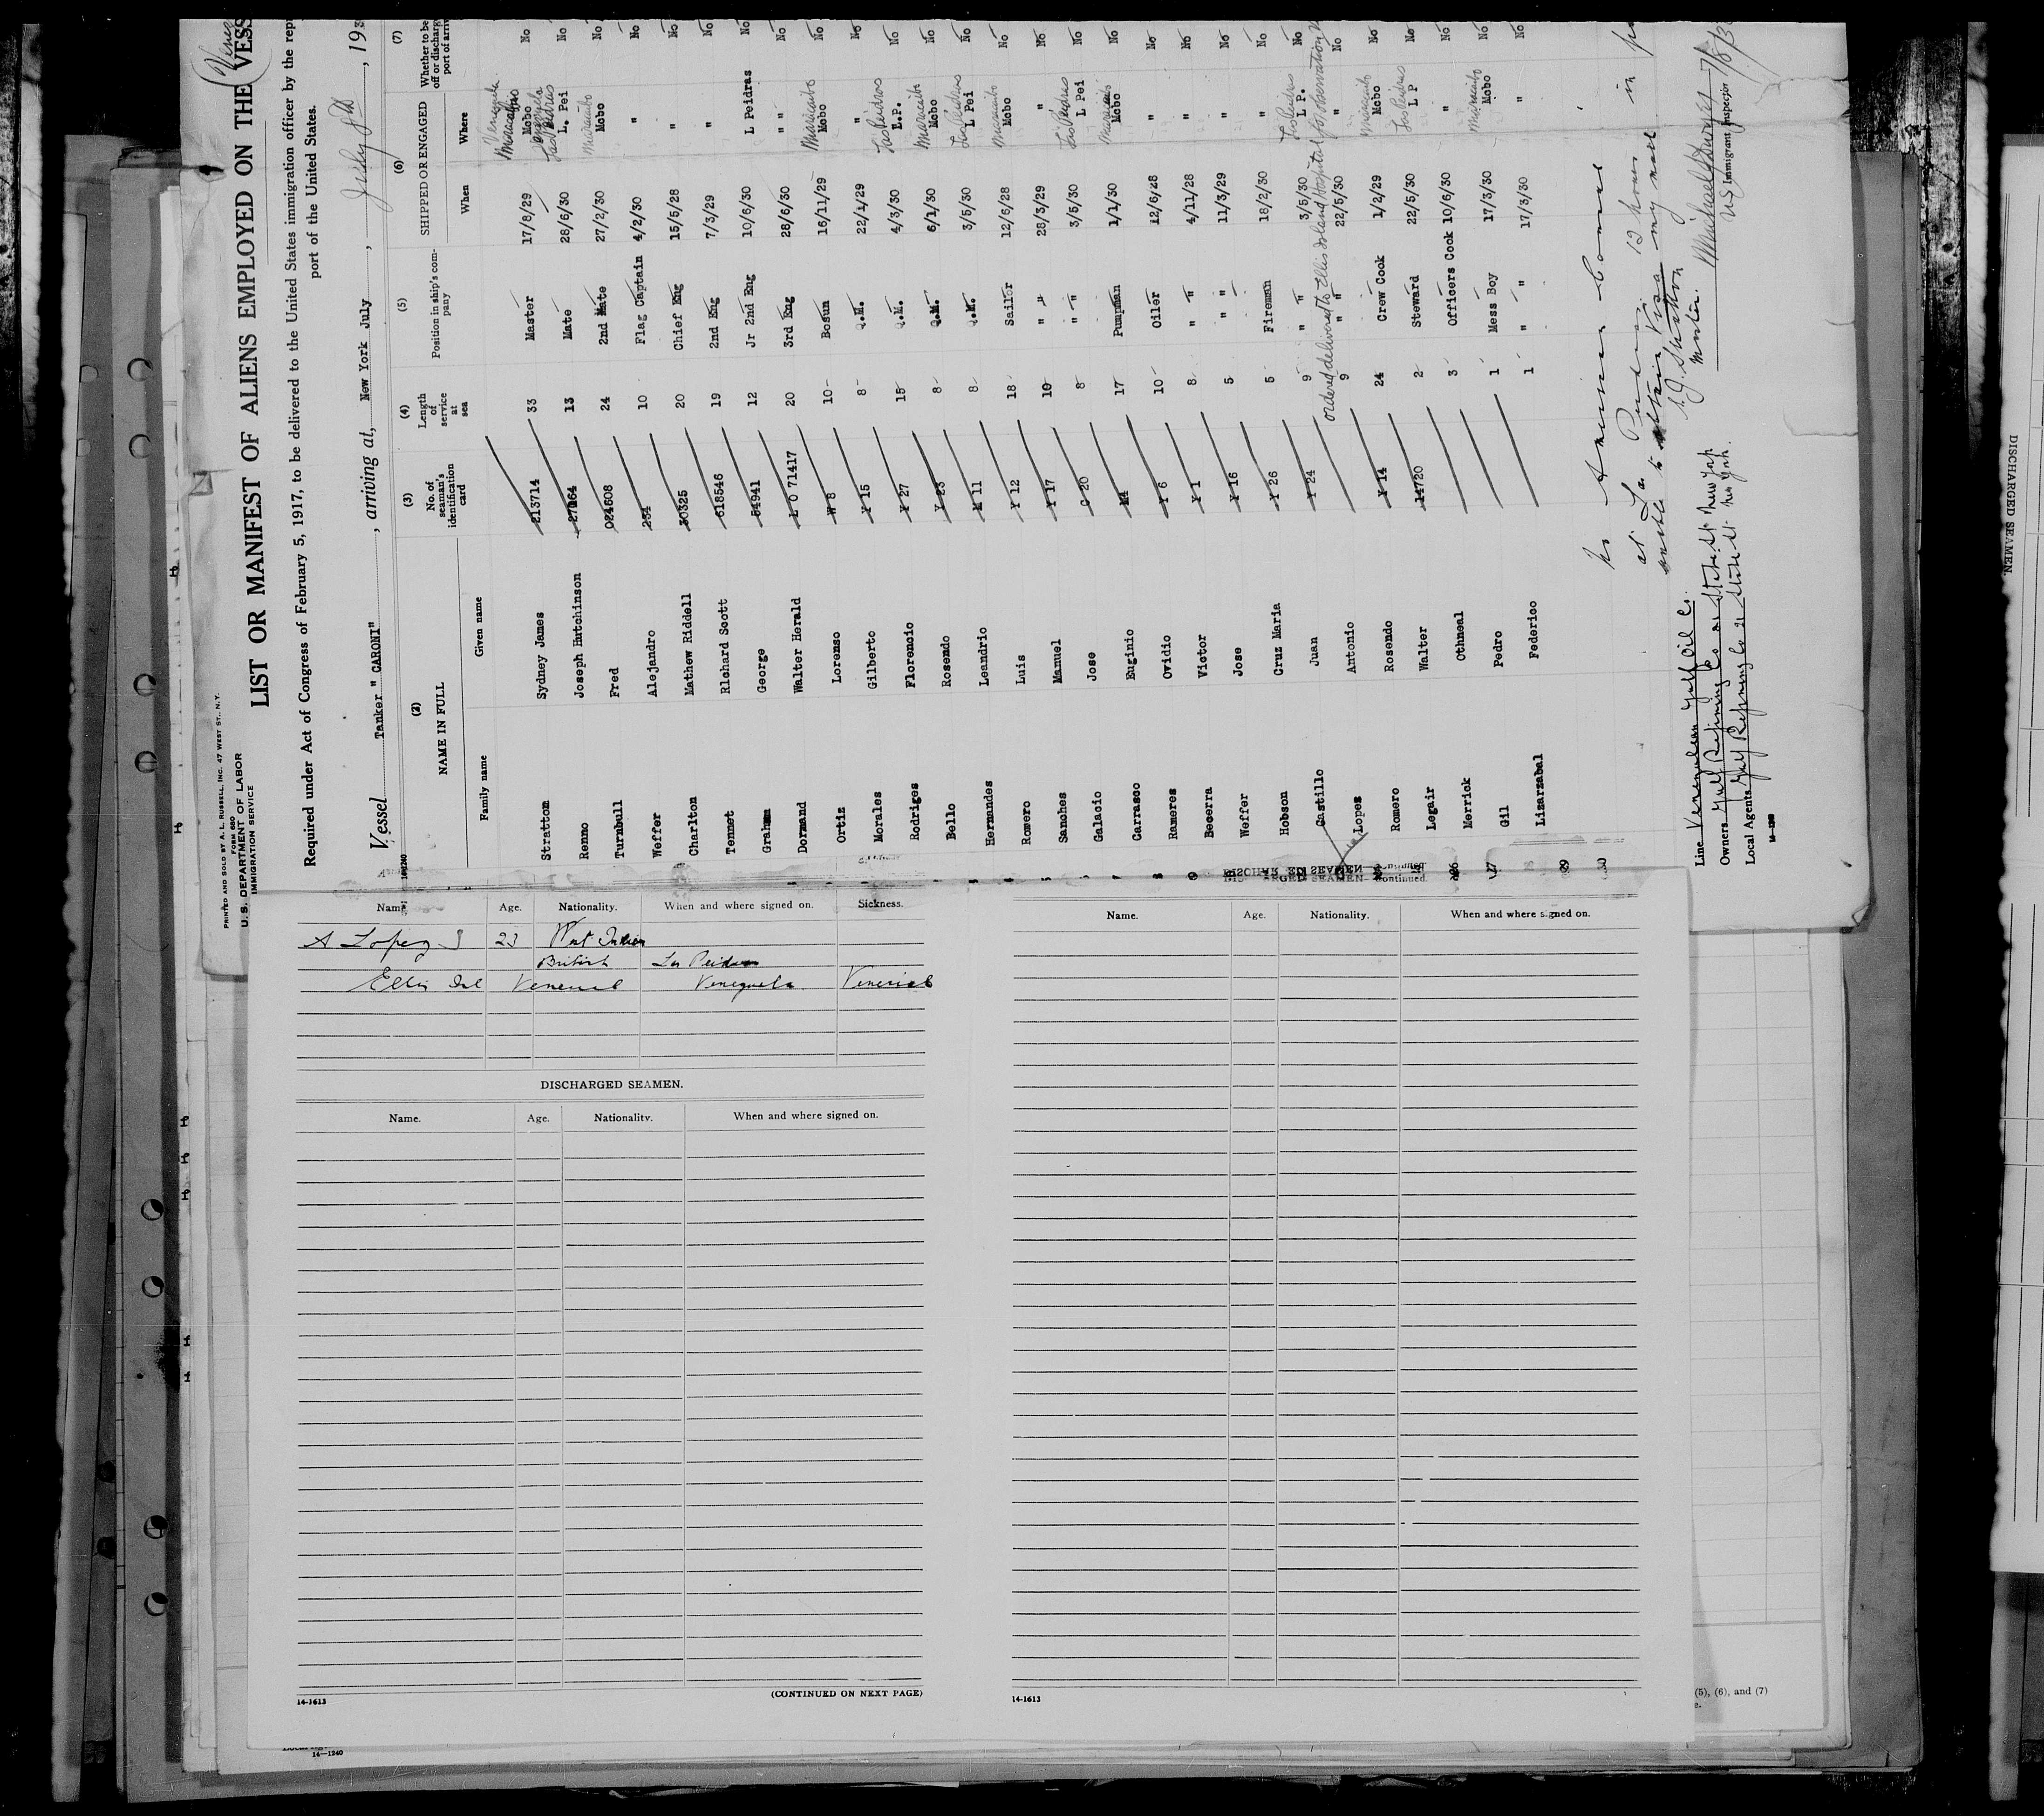 PRINTED AND SOLD BY A. L. RUSSELL, INC. 47 WEST ST., N.Y.
FORM 680
U. S. DEPARTMENT OF LABOR
IMMIGRATION SERVICE
LIST OR MANIFEST OF ALIENS EMPLOYED ON THE VESS
Required under Act of Congress of February 5, 1917, to be delivered to the United States immigration officer by the rep
port of the United States.
Vessel Tanker " CARONI" , arriving at, New York July , July 8th , 193
(2) NAME IN FULL (3) No. of seaman's identification card (4) Length of service at sea (5) Position in ship's company (6) SHIPPED OR ENGAGED (7) Whether to be off or discharg port of arriv
Family name Given name When Where
Stratton Sydney James 213714 33 Master 17/8/29 Venezuela Maracaibo Mobo No
Renno Joseph Hutchinson 27164 13 Mate 28/6/30 Venezuela Las Peidras L. Pei No
Turnbull Fred 024608 24 2nd Mate 27/2/30 Maracaibo Mobo No
Weffer Alejandro 234 10 Flag Captain 4/2/30 " No
Charlton Mathew Riddell 30325 20 Chief Eng 15/5/28 " No
Tennet Richard Scott 618546 19 2nd Eng 7/3/29 " No
Graham George 54941 12 Jr 2nd Eng 10/6/30 L Peidras No
Dormand Walter Herald L O 71417 20 3rd Eng 28/6/30 " " No
Ortiz Lorenso W 8 10 Bosun 16/11/29 Maracaibo Mobo No
Morales Gilberto Y 15 8 Q.M. 22/1/29 " No
Rodriges Florencio Y 27 15 Q.M. 4/3/30 Las Peidras L.P. No
Bello Rosendo Y 23 8 Q.M. 6/1/30 Maracaibo Mobo No
Hernandes Leandrio M 11 8 Q.M. 3/5/30 Las Peidras L Pei No
Romero Luis Y 12 18 Sailor 12/6/28 Maracaibo Mobo No
Sanches Manuel Y 17 10 " " 28/3/29 " No
Galacio Jose C 20 8 " " 3/5/30 Las Peidras L Pei No
Carrasco Euginio M4 17 Pumpman 1/1/30 Maracaibo Mobo No
Rameres Ovidio Y 6 10 Oiler 12/6/28 " No
Becerra Victor Y 1 8 " " 4/11/28 " No
Weffer Jose Y 16 5 " " 11/3/29 " No
Hobson Cruz Maria Y 26 5 Fireman 18/2/30 " No
Castillo Juan Y 24 9 " " 3/5/30 Las Peidras L P. No
ordered delivered to Ellis Island Hospital for observation
Lopez Antonio 9 " " 22/5/30 " No
Romero Rosendo Y 14 24 Crew Cook 1/2/29 Maracaibo Mobo No
Legair Walter 14720 2 Steward 22/5/30 Las Peidras L P No
Merrick Othneal 3 Officers Cook 10/6/30 " No
Gil Pedro 1 Mess Boy 17/3/30 Maracaibo Mobo No
Lizarzabal Federico 1 " " 17/3/30 " No
29
30
No American Consul in
at Las Peidras, 12 hours
unable to obtain Visa my next
S J Stratton
Master.
Michael 7/8/30
U.S. Immigrant Inspector
Line Venezuelan Gulf Oil Co.
Owners Gulf Refining Co 21 State St New York
Local Agents Gulf Refining Co 21 State St New York.
14—1240
Name. Age. Nationality. When and where signed on. Sickness.
A Lopez 23 West Indies
British Las Peidras
Ellis Isl Venereal Venezuela Venereal
DISCHARGED SEAMEN.
Name. Age. Nationality. When and where signed on.
14-1613
(CONTINUED ON NEXT PAGE)
DISCHARGED SEAMEN—Continued.
Name. Age. Nationality. When and where signed on.
14-1613
(5), (6), and (7)
14—1240
DISCHARGED SEAMEN.